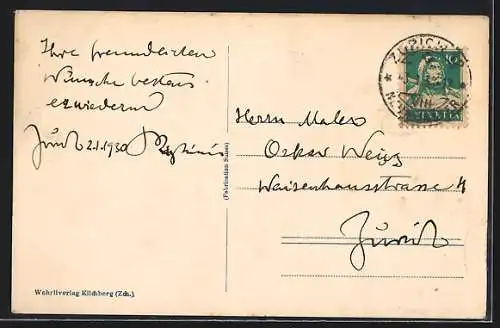 Ihre freundlichen
Wünsche bestens
erwiedernd
Zürich 2.1.1930
Herrn Maler
Oskar Weiss
Waisenhausstrasse 4
Zürich
(Fabrication Suisse)
Wehrliverlag Kilchberg (Zch.)
ZÜRICH
10
VIII
HELVETIA